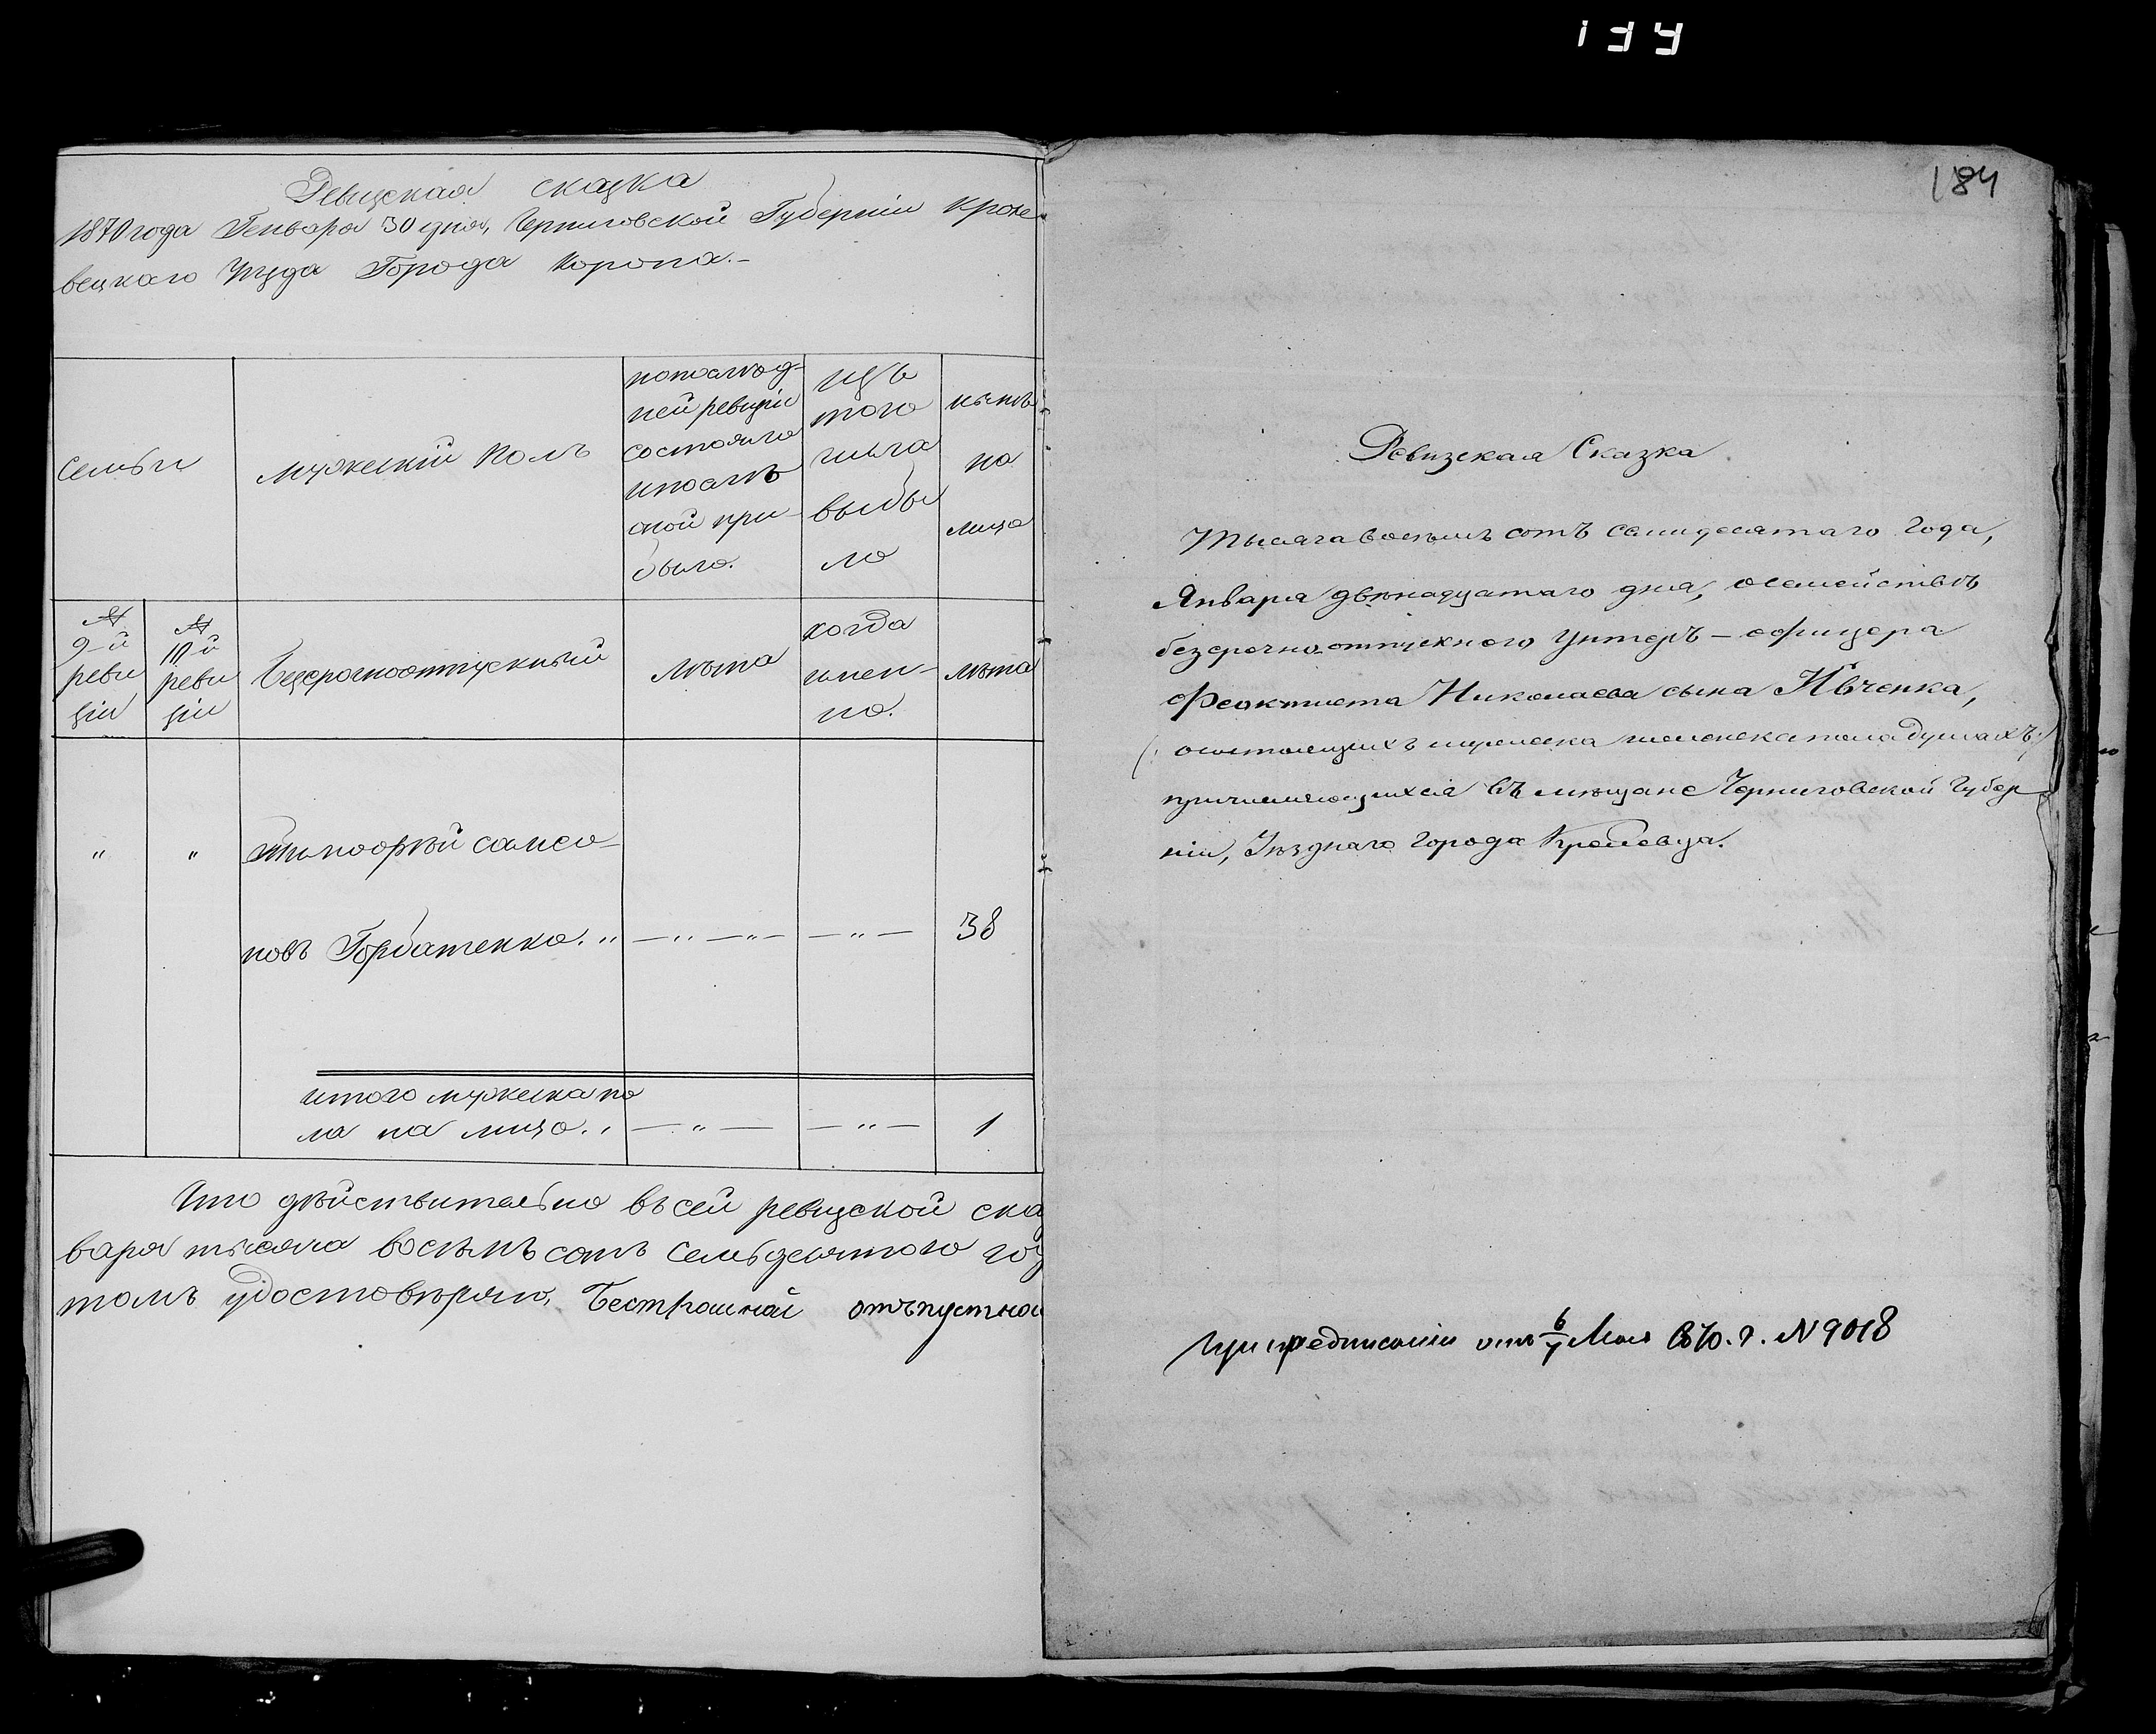 Ревизская сказка
1870 года Генваря 30 дня, Черниговской Губерніи Кроле-
вецкаго Уезда Города Коропа.-
семьи
мужескій полъ
по послѣд-
ней ревизіи
состояло
и послѣ
оной при-
было.
изъ
того
числа
выбы
ло
нынѣ
на
лицо
№
9-й
реви
зіи
№
10-й
реви
зіи
Безсрочноотпускный
лѣта
когда
имен-
но.
лѣта
" " Тимофѣй Самсо-
новъ Горбатенко. " — " — " — — " — 38
итого мужеска по
ла на лицо. " — " — — " — 1
Что дѣйствительно въ сей ревизской ска
варя тысяча восемь сотъ семьдесятого го
томъ удостовѣряю,
184
Ревизская Сказка.
Тысяча восемь сотъ семидесятаго Года,
Января двѣнадцатаго дня, о семействѣ
безсрочно отпускного Унтеръ-офицера
Феоктиста Николаева сына Ивченка,
(о состоящихъ мужеска и женска пола душахъ,)
причисляющихся въ мѣщане Черниговской Губер
ніи, Уезднаго Города Кролевца.
При предписаніи отъ 6/7 Мая 1870. г. N 9018